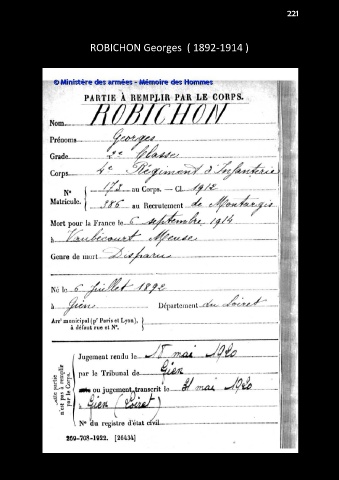 221
ROBICHON Georges ( 1892-1914 )
© Ministère des armées - Mémoire des Hommes
PARTIE À REMPLIR PAR LE CORPS.
Nom ROBICHON
Prénoms Georges
Grade 2e Classe
Corps 4e Régiment d'Infanterie
N° 173 au Corps. — Cl. 1912
Matricule. 386 au Recrutement de Montargis
Mort pour la France le 6 septembre 1914
à Vaubécourt Meuse
Genre de mort Disparu
Né le 6 juillet 1892
à Gien Département du Loiret
Arrt municipal (pr Paris et Lyon),
à défaut rue et N°.
Cette partie
n'est pas à remplir
par le Corps.
Jugement rendu le 18 mai 1920
par le Tribunal de Gien
ou jugement transcrit le 31 mai 1920
à Gien (Loiret)
N° du registre d'état civil
269-708-1922. [26434]